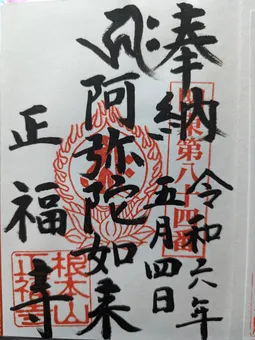 奉納
第八十四番
令和六年
五月四日
阿弥陀如来
正福寺
根本山
正福寺